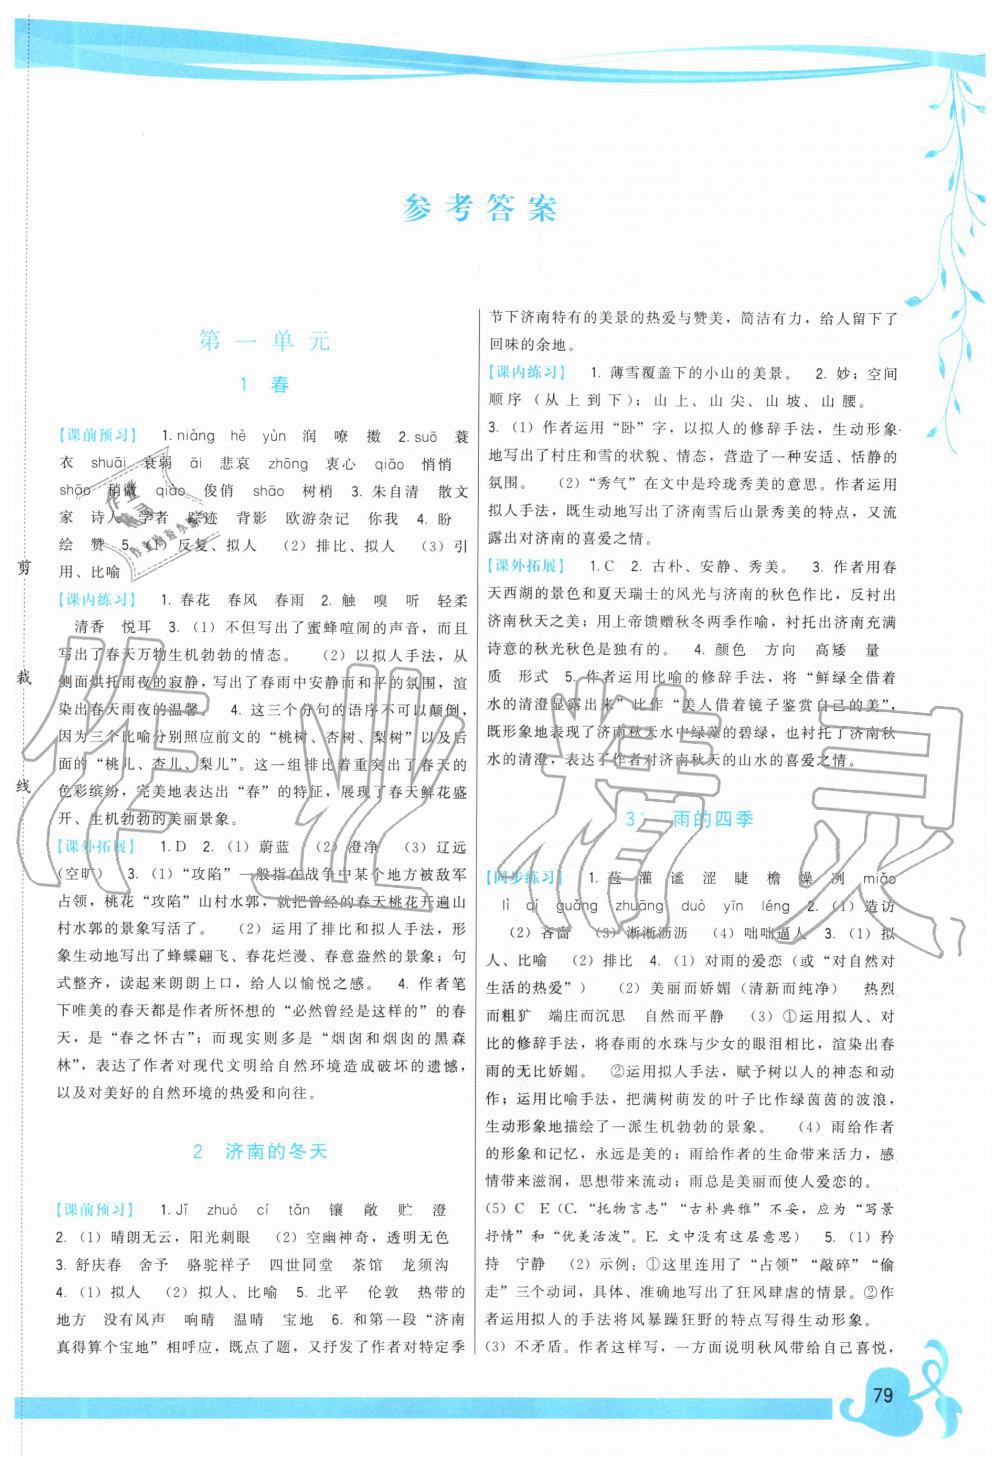 参考答案
第一单元
1 春
【课前预习】 1.niàng hè yùn 润 嘹 擞 2.suō 蓑
衣 shuāi 衰弱 āi 悲哀 zhōng 衷心 qiāo 悄悄
shāo 稍微 qiào 俊俏 shāo 树梢 3.朱自清 散文
家 诗人 学者 踪迹 背影 欧游杂记 你我 4.盼
绘 赞 5.(1)反复、拟人 (2)排比、拟人 (3)引
用、比喻
【课内练习】 1.春花 春风 春雨 2.触 嗅 听 轻柔
清香 悦耳 3.(1)不但写出了蜜蜂喧闹的声音,而且
写出了春天万物生机勃勃的情态。 (2)以拟人手法,从
侧面烘托雨夜的寂静,写出了春雨中安静而和平的氛围,渲
染出春天雨夜的温馨。 4.这三个分句的语序不可以颠倒,
因为三个比喻分别照应前文的“桃树、杏树、梨树”以及后面
的“桃儿、杏儿、梨儿”。这一组排比着重突出了春天的
色彩缤纷,完美地表达出“春”的特征,展现了春天鲜花盛
开、生机勃勃的美丽景象。
【课外拓展】 1.D 2.(1)蔚蓝 (2)澄净 (3)辽远
(空旷) 3.(1)“攻陷”一般指在战争中某个地方被敌军
占领,桃花“攻陷”山村水郭,就把曾经的春天桃花开遍山
村水郭的景象写活了。 (2)运用了排比和拟人手法,形
象生动地写出了蜂蝶翩飞、春花烂漫、春意盎然的景象;句
式整齐,读起来朗朗上口,给人以愉悦之感。 4.作者笔
下唯美的春天都是作者所怀想的“必然曾经是这样的”的春
天,是“春之怀古”;而现实则多是“烟囱和烟囱的黑森
林”,表达了作者对现代文明给自然环境造成破坏的遗憾,
以及对美好的自然环境的热爱和向往。
2 济南的冬天
【课前预习】 1.Jǐ zhuó cí tǎn 镶 敞 贮 澄
2.(1)晴朗无云,阳光刺眼 (2)空幽神奇,透明无色
3.舒庆春 舍予 骆驼祥子 四世同堂 茶馆 龙须沟
4.(1)拟人 (2)拟人、比喻 5.北平 伦敦 热带的
地方 没有风声 响晴 温晴 宝地 6.和第一段“济南
真得算个宝地”相呼应,既点了题,又抒发了作者对特定季
节下济南特有的美景的热爱与赞美,简洁有力,给人留下了
回味的余地。
【课内练习】 1.薄雪覆盖下的小山的美景。 2.妙;空间
顺序(从上到下);山上、山尖、山坡、山腰。
3.(1)作者运用“卧”字,以拟人的修辞手法,生动形象
地写出了村庄和雪的状貌、情态,营造了一种安适、恬静的
氛围。 (2)“秀气”在文中是玲珑秀美的意思。作者运用
拟人手法,既生动地写出了济南雪后山景秀美的特点,又流
露出对济南的喜爱之情。
【课外拓展】 1.C 2.古朴、安静、秀美。 3.作者用春
天西湖的景色和夏天瑞士的风光与济南的秋色作比,反衬出
济南秋天之美;用上帝馈赠秋冬两季作喻,衬托出济南充满
诗意的秋光秋色是独有的。 4.颜色 方向 高矮 量
质 形式 5.作者运用比喻的修辞手法,将“鲜绿全借着
水的清澄显露出来”比作“美人借着镜子鉴赏自己的美”,
既形象地表现了济南秋天水中绿藻的碧绿,也衬托了济南秋
水的清澄,表达了作者对济南秋天的山水的喜爱之情。
3* 雨的四季
【同步练习】 1.苞 灌 谧 涩 睫 檐 燥 冽 miǎo
lì qí guǎng zhuāng duò yīn léng 2.(1)造访
(2)吝啬 (3)淅淅沥沥 (4)咄咄逼人 3.(1)拟
人、比喻 (2)排比 4.(1)对雨的爱恋(或“对自然对
生活的热爱”) (2)美丽而娇媚(清新而纯净) 热烈
而粗犷 端庄而沉思 自然而平静 (3)①运用拟人、对
比的修辞手法,将春雨的水珠与少女的眼泪相比,渲染出春
雨的无比娇媚。 ②运用拟人手法,赋予树以人的神态和动
作;运用比喻手法,把满树萌发的叶子比作绿茵茵的波浪,
生动形象地描绘了一派生机勃勃的景象。 (4)雨给作者
的形象和记忆,永远是美的;雨给作者的生命带来活力,感
情带来滋润,思想带来流动;雨总是美丽而使人爱恋的。
(5)C E(C.“托物言志”“古朴典雅”不妥,应为“写景
抒情”和“优美活泼”。E.文中没有这层意思) 5.(1)矜
持 宁静 (2)示例:①这里连用了“占领”“敲碎”“偷
走”三个动词,具体、准确地写出了狂风肆虐的情景。②作
者运用拟人的手法将风暴躁狂野的特点写得生动形象。
(3)不矛盾。作者这样写,一方面说明秋风带给自己喜悦,
剪
裁
线
作业精灵
79